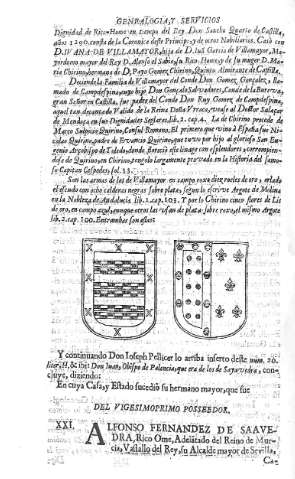 GENEALOGIA, Y SERVICIOS
Dignidad de Rico-Home en tiempo del Rey Don Sancho Quarto de Castilla,
años 1290. consta de la Coronica deste Principe, y de otros Nobiliarios. Casò con
DOÑA IVANA DE VILLAMAYOR, hija de D. Iuā Garcia de Villamayor, Ma-
yordomo mayor del Rey D. Alonso el Sabio, su Rico-Home, y de su muger D. Ma-
ria Chirino, hermano de D. Payo Gomez Chirino, Quinto Almirante de Castilla.
Deciende la Familia de Villamayor del Conde Don Gomez Gonçalez, lla-
mado de Campdespina, cuyo hijo Don Gonçalo Salvadores, Conde de la Bureva,
gran Señor en Castilla, fue padre del Conde Don Ruy Gomez de Campdespina,
aquel tan decantado Valido de la Reina Doña Vrraca, vease al Doctor Salazar
de Mendoza en sus Dignidades Seglares, lib. 2. cap. 4. La de Chirino procede de
Marco Sulpicio Quirino, Consul Romano. El primero que vino à España fue Ni-
colas Quirino, padre de Ervancio Quirino, que tuvo por hijo al glorioso San Eu-
genio Arçobispo de Toledo, donde florecio este linage con esplendor; y corrompien-
dose de Quirino, en Chirino, tengolo largamente provado en la Historia del famo-
so Capitan Cespedes, fol. 33.
Son las armas de los de Villamayor en campo roxo diez roeles de oro, orlado
el escudo con ocho calderas negras sobre plata, segun lo escrive Argote de Molina
en la Nobleza de Andaluzia lib. 2. cap. 103. Y por lo Chirino cinco flores de Lis
de oro, en campo azul, aunque otros las usan de plata sobre roxo, el mismo Argote
lib. 2. cap. 100. Entrambas son assi:
Y continuando Don Ioseph Pellicer lo arriba inserto deste num. 20.
littera H, & ibi: Don Iuan, Obispo de Palencia, que era de los de Sayavedra, con-
cluye, diziendo:
En cuya Casa, y Estado sucediò su hermano mayor, que fue
DEL VIGESIMOPRIMO POSSEEDOR.
XXI. ALFONSO FERNANDEZ DE SAAVE-
DRA, Rico Ome, Adelātado del Reino de Mur-
cia, Vassallo del Rey, su Alcalde mayor de Sevilla,
Co-